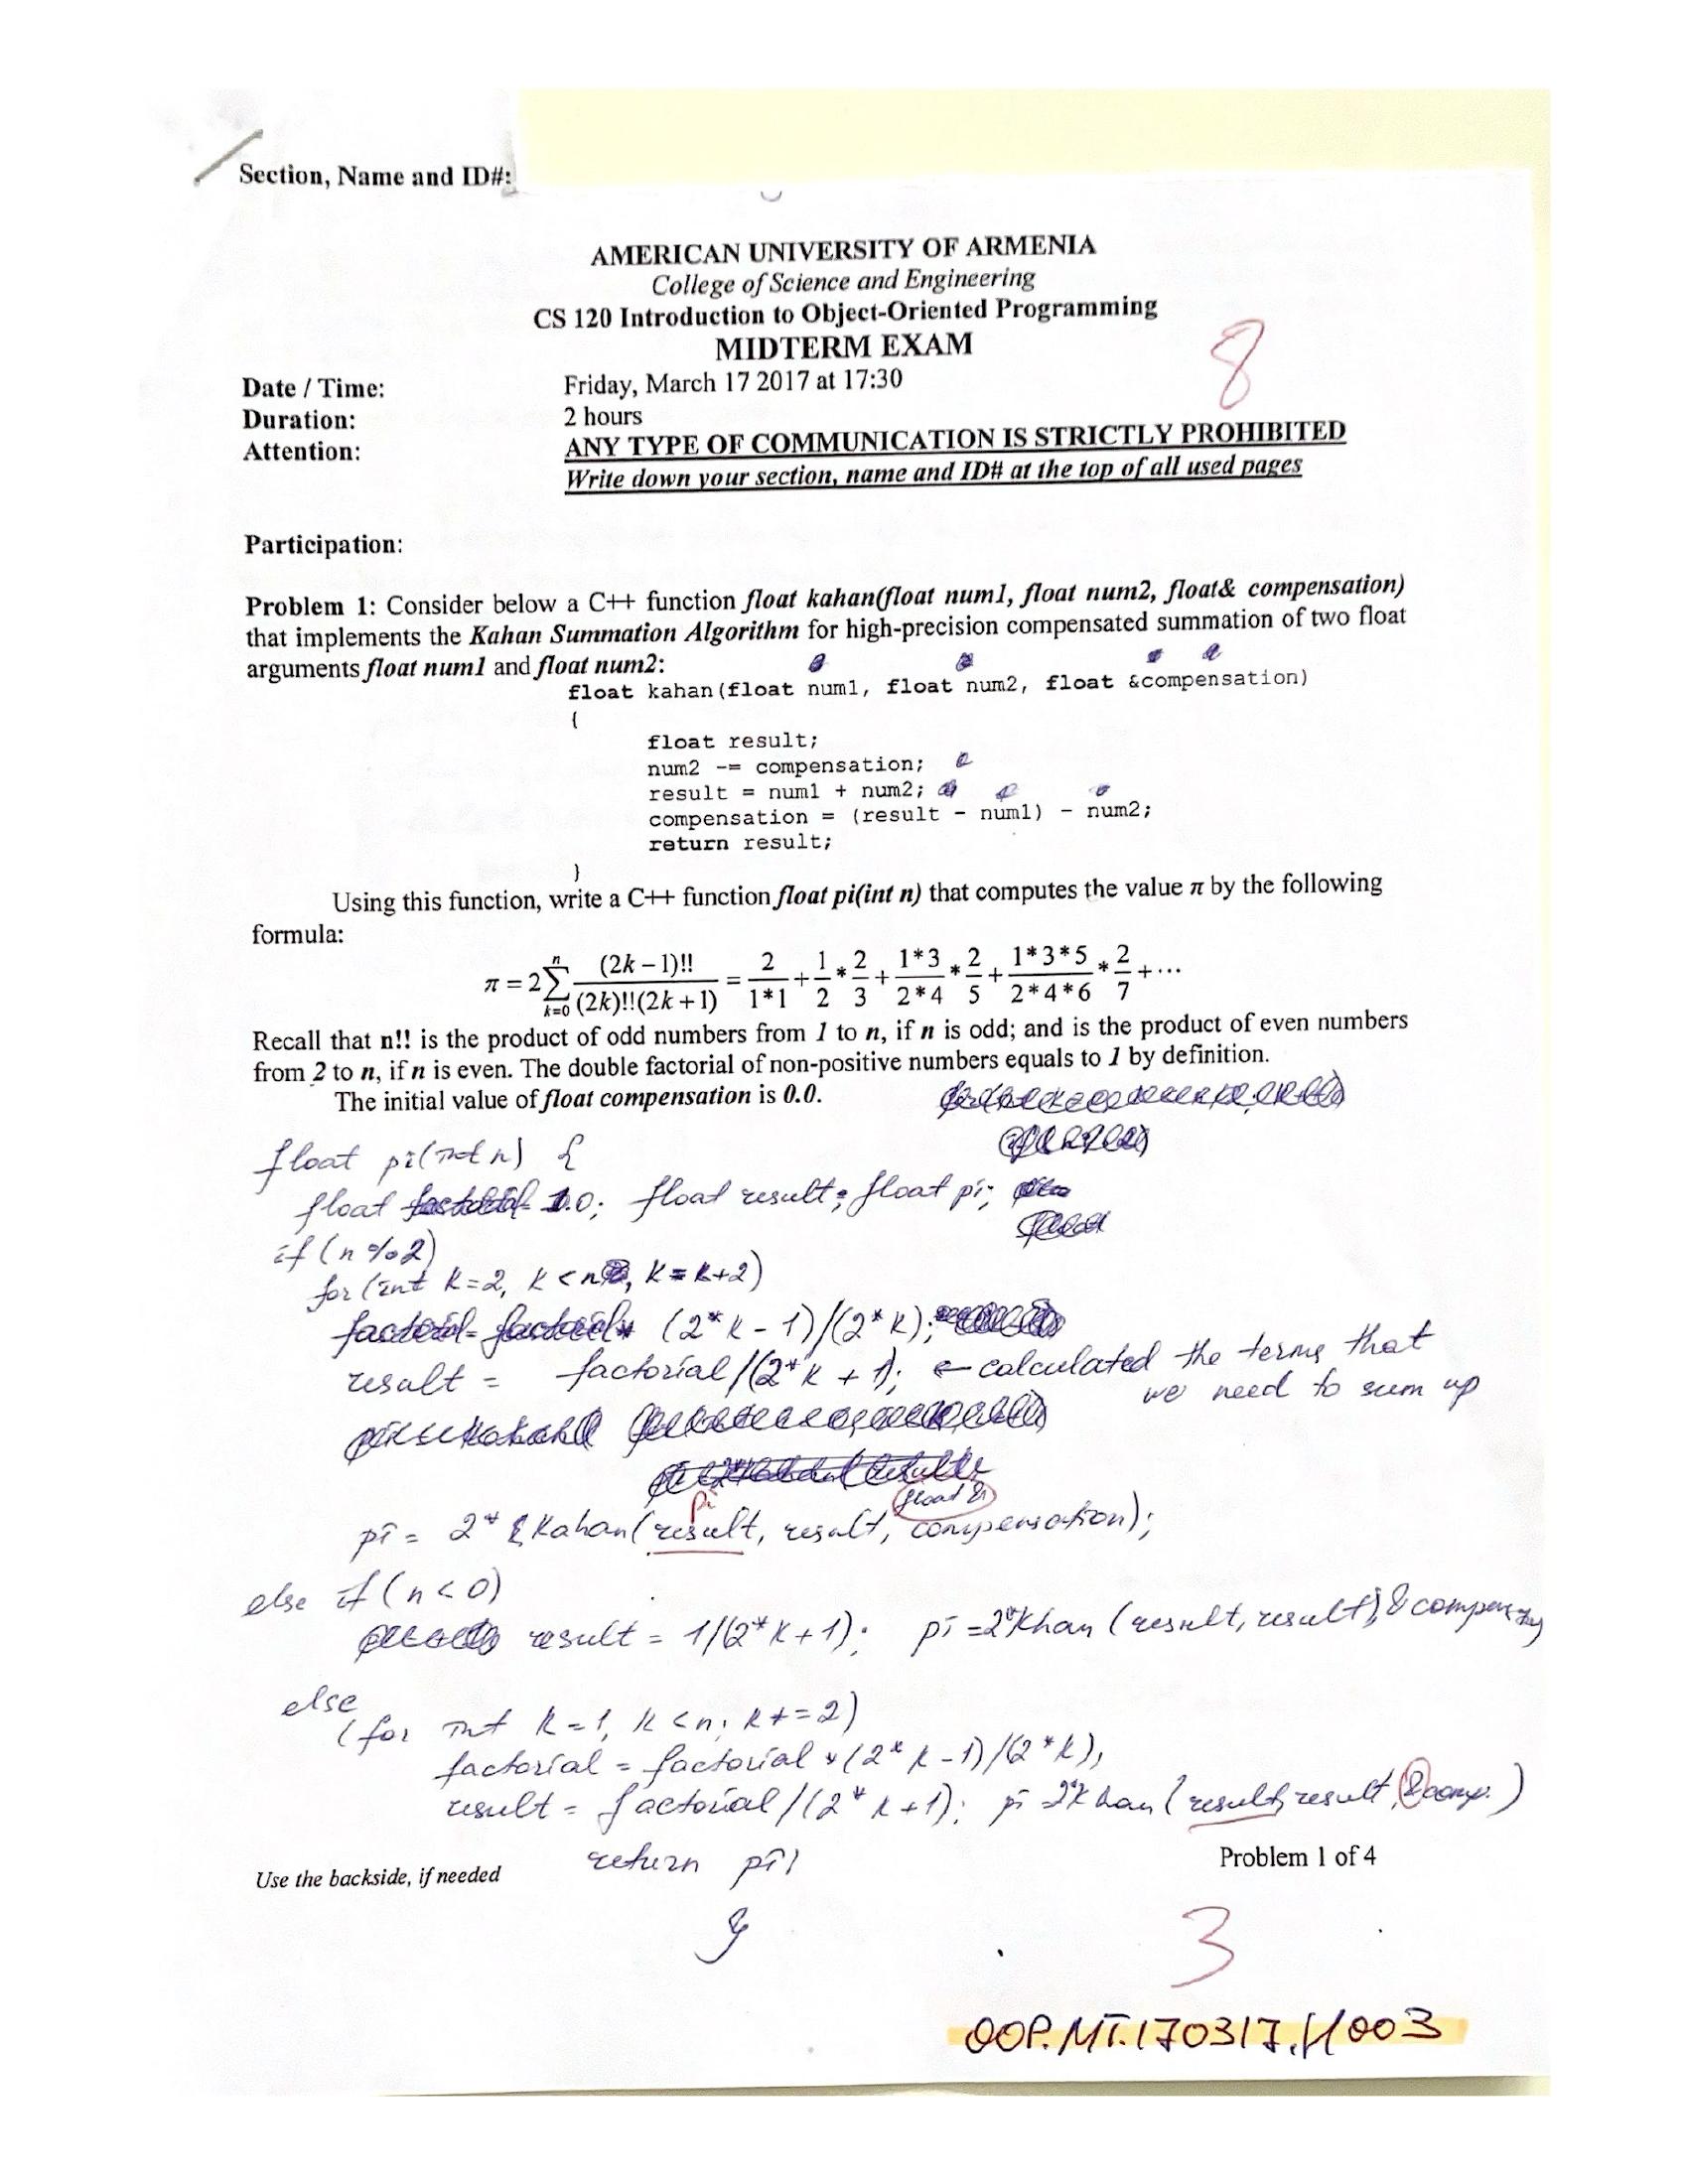 Section, Name and ID#:
AMERICAN UNIVERSITY OF ARMENIA
College of Science and Engineering
CS 120 Introduction to Object-Oriented Programming
MIDTERM EXAM
8
Date / Time: Friday, March 17 2017 at 17:30
Duration: 2 hours
Attention: ANY TYPE OF COMMUNICATION IS STRICTLY PROHIBITED
Write down your section, name and ID# at the top of all used pages
Participation:
Problem 1: Consider below a C++ function float kahan(float num1, float num2, float& compensation)
that implements the Kahan Summation Algorithm for high-precision compensated summation of two float
arguments float num1 and float num2:
float kahan(float num1, float num2, float &compensation)
{
float result;
num2 -= compensation;
result = num1 + num2;
compensation = (result - num1) - num2;
return result;
}
Using this function, write a C++ function float pi(int n) that computes the value π by the following
formula:
π = 2 ∑_{k=0}^{n} (2k – 1)!! / (2k)!!(2k + 1) = 2/1*1 + 1/2 * 2/3 + 1*3/2*4 * 2/5 + 1*3*5/2*4*6 * 2/7 + ⋯
Recall that n!! is the product of odd numbers from 1 to n, if n is odd; and is the product of even numbers
from 2 to n, if n is even. The double factorial of non-positive numbers equals to 1 by definition.
The initial value of float compensation is 0.0.
float pi(int n) {
float factorial 1.0; float result; float pi;
if (n %2)
for (int k=2, k < n, k = k+2)
factorial = factorial * (2*k - 1)/(2*k);
result = factorial /(2*k + 1); ← calculated the terms that
we need to sum up
pi
float &
pi = 2* Kahan(result, result, compensation);
else if (n < 0)
result = 1/(2*k+1); pi =2*Khan (result, result, &compen
else
(for int k=1, k <n; k+=2)
factorial = factorial * (2* k -1)/(2*k),
result = factorial /(2* k+1); pi =2*khan (result, result, &comp. )
return pi;
}
Use the backside, if needed
Problem 1 of 4
3
OOP.MT.170317.H003